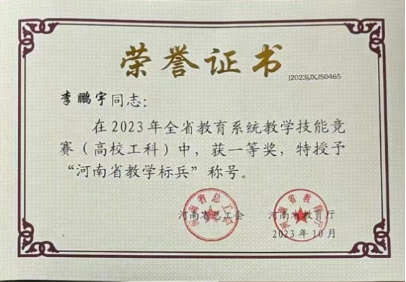 荣誉证书
[2023]JXJS0465
李鹏宇同志：
在2023年全省教育系统教学技能竞
赛（高校工科）中，获一等奖，特授予
“河南省教学标兵”称号。
河南省总工会 河南省教育厅
2023年10月